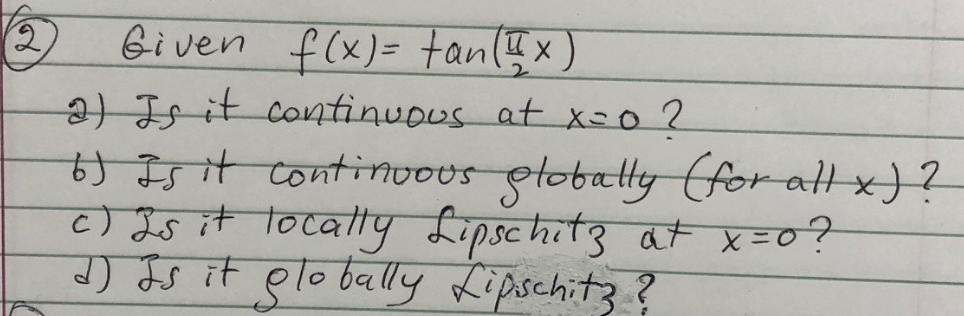 ② Given f(x)= tan(π/2 x)
a) Is it continuous at x=0?
b) Is it continuous globally (for all x)?
c) Is it locally Lipschitz at x=0?
d) Is it globally Lipschitz?